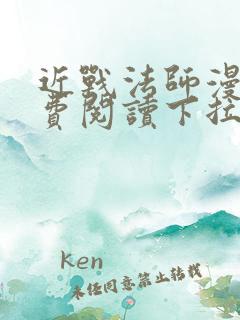 近戰法師漫
費閱讀下拉
Ken
未经同意禁止转载